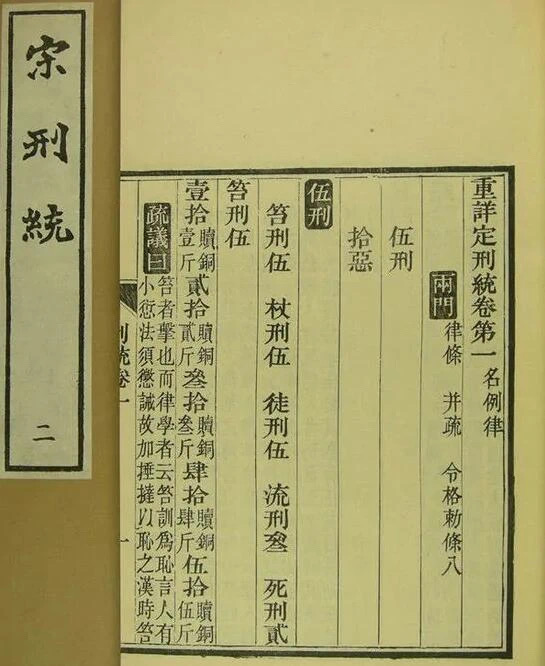 宋刑統
二
重詳定刑統卷第一 名例律
兩門 律條 并疏 令格勅條八
伍刑
拾惡
伍刑
笞刑伍 杖刑伍 徒刑伍 流刑叄 死刑貳
笞刑伍
壹拾贖銅壹斤 貳拾贖銅貳斤 叄拾贖銅叄斤 肆拾贖銅肆斤 伍拾贖銅伍斤
疏議曰 笞者擊也而律學者云笞訓爲恥言人有
小愆法須懲誡故加捶撻以恥之漢時笞
刑統卷一 一